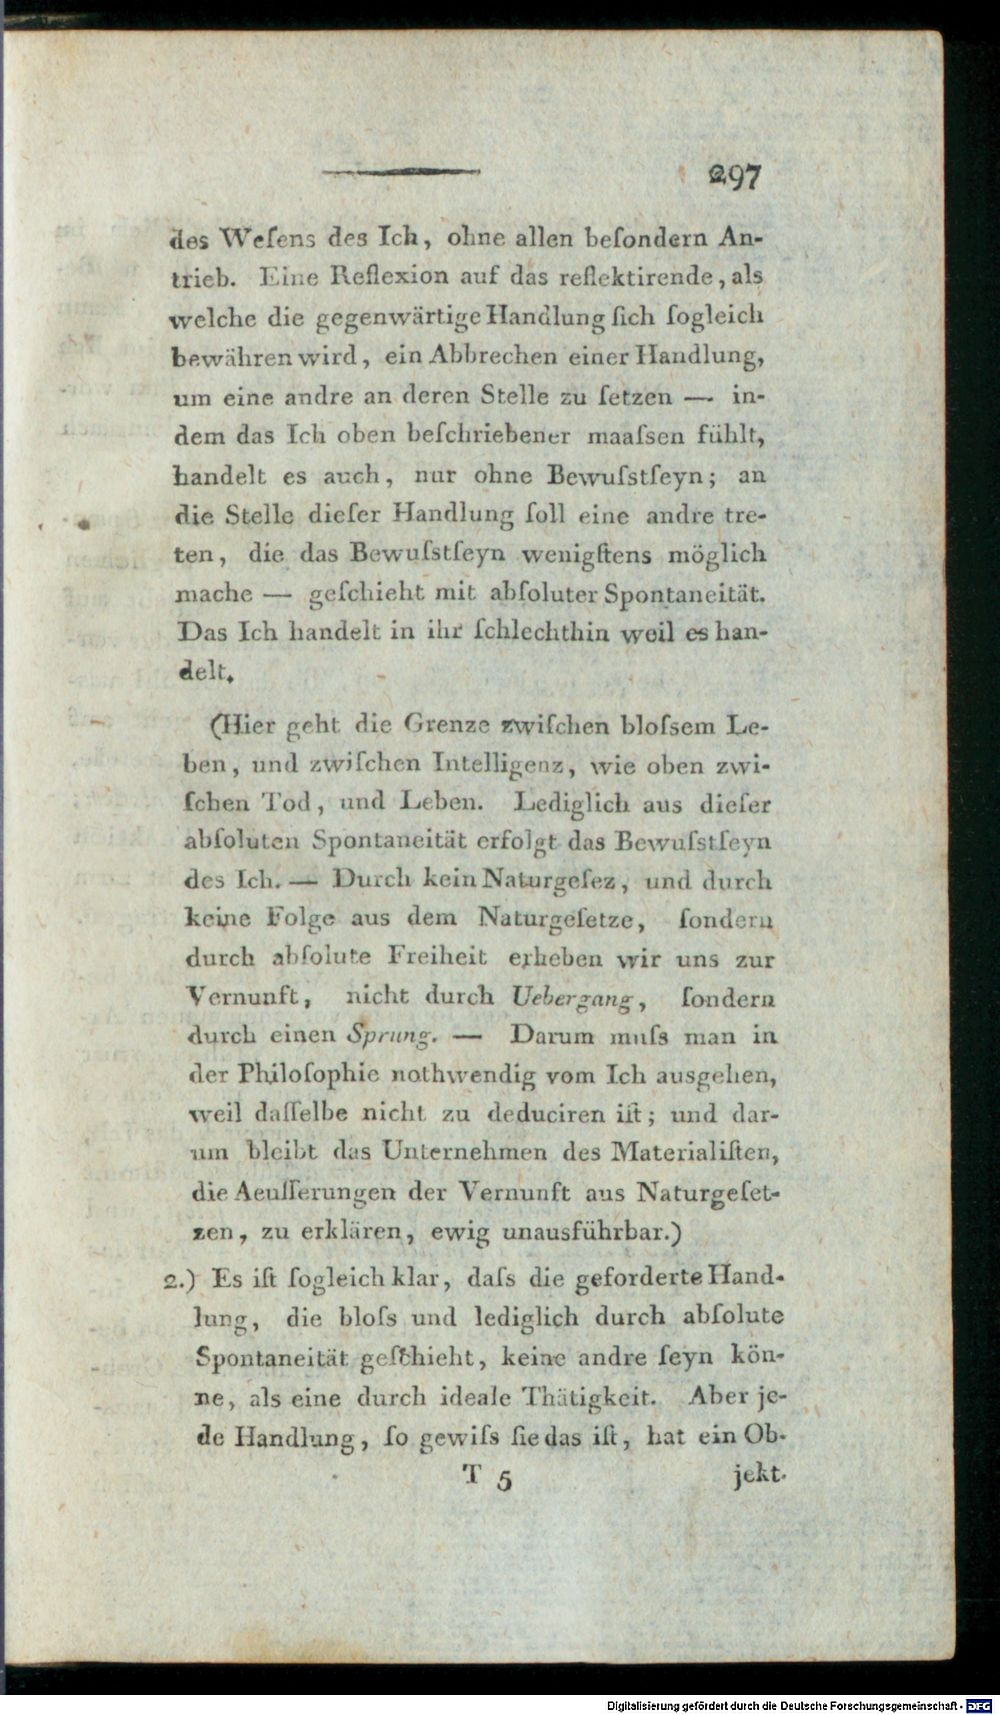 297
des Weſens des Ich, ohne allen beſondern An-
trieb. Eine Reflexion auf das reflektirende, als
welche die gegenwärtige Handlung ſich ſogleich
bewähren wird, ein Abbrechen einer Handlung,
um eine andre an deren Stelle zu ſetzen — in-
dem das Ich oben beſchriebener maaſsen fühlt,
handelt es auch, nur ohne Bewuſstſeyn; an
die Stelle dieſer Handlung ſoll eine andre tre-
ten, die das Bewuſstſeyn wenigſtens möglich
mache — geſchieht mit abſoluter Spontaneität.
Das Ich handelt in ihr ſchlechthin weil es han-
delt.
(Hier geht die Grenze zwiſchen bloſsem Le-
ben, und zwiſchen Intelligenz, wie oben zwi-
ſchen Tod, und Leben. Lediglich aus dieſer
abſoluten Spontaneität erfolgt das Bewuſstſeyn
des Ich. — Durch kein Naturgeſez, und durch
keine Folge aus dem Naturgeſetze, ſondern
durch abſolute Freiheit erheben wir uns zur
Vernunft, nicht durch Uebergang, ſondern
durch einen Sprung. — Darum muſs man in
der Philoſophie nothwendig vom Ich ausgehen,
weil daſſelbe nicht zu deduciren iſt; und dar-
um bleibt das Unternehmen des Materialiſten,
die Aeuſſerungen der Vernunft aus Naturgeſet-
zen, zu erklären, ewig unausführbar.)
2.) Es iſt ſogleich klar, daſs die geforderte Hand-
lung, die bloſs und lediglich durch abſolute
Spontaneität geſchieht, keine andre ſeyn kön-
ne, als eine durch ideale Thätigkeit. Aber je-
de Handlung, ſo gewiſs ſie das iſt, hat ein Ob-
T 5 jekt.
Digitalisierung gefördert durch die Deutsche Forschungsgemeinschaft - DFG